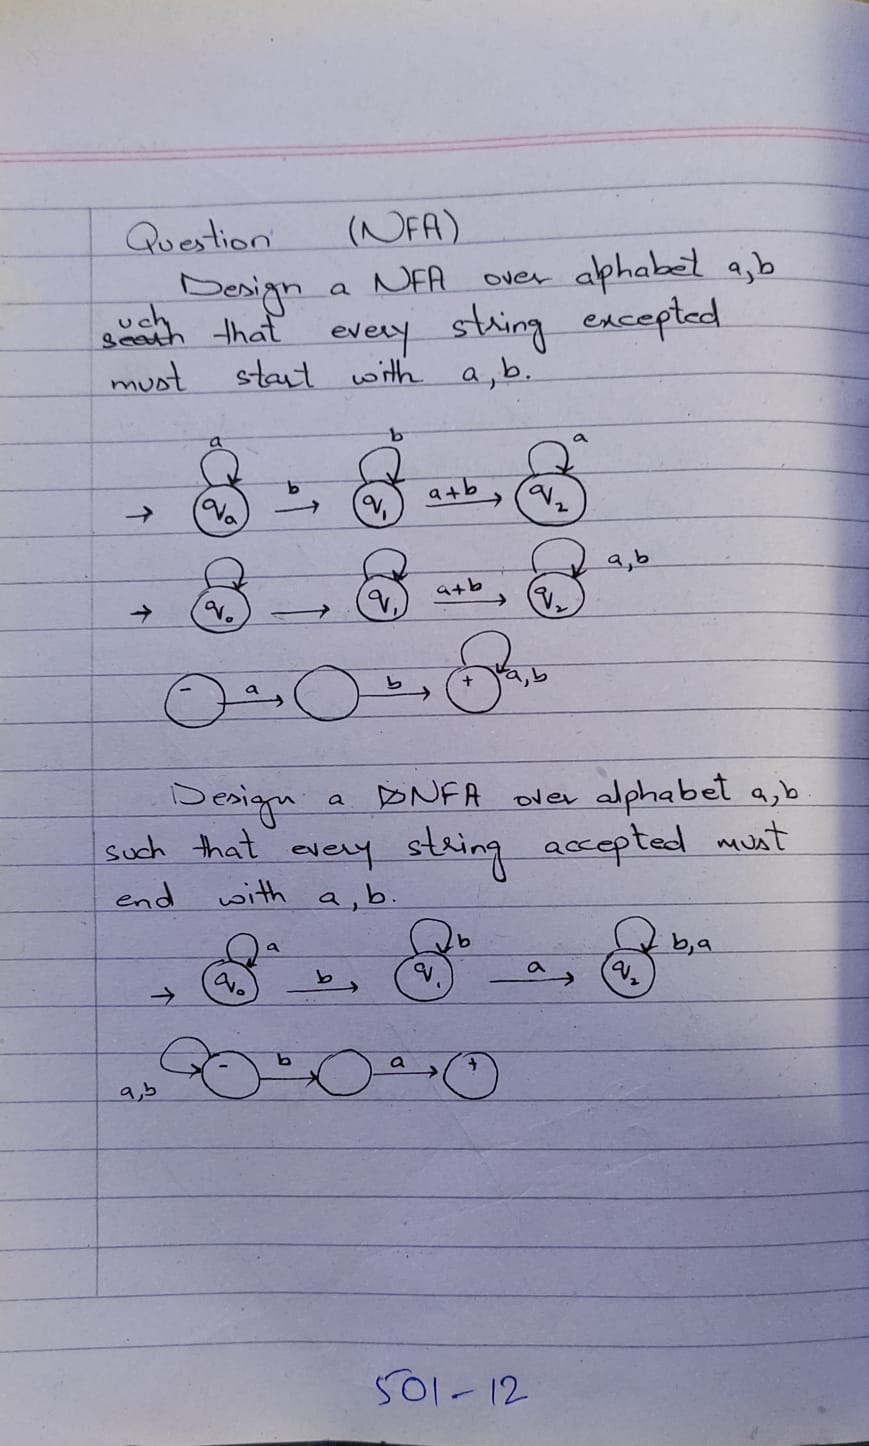 Question (NFA)
Design a NFA over alphabet a,b
such that every string excepted
must start with a,b.
a b a
→ qa b qı a+b q2
→ q0 q1 a+b q2 a,b
- a b + a,b
Design a NFA over alphabet a,b.
such that every string accepted must
end with a,b.
a b b,a
→ q0 b q1 a q2
a,b - b a +
501-12